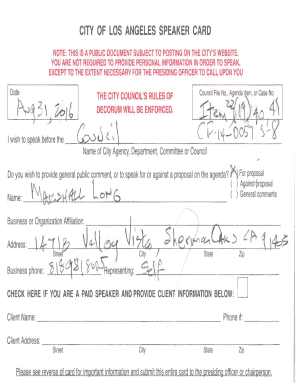 CITY OF LOS ANGELES SPEAKER CARD
NOTE: THIS IS A PUBLIC DOCUMENT SUBJECT TO POSTING ON THE CITY'S WEBSITE.
YOU ARE NOT REQUIRED TO PROVIDE PERSONAL INFORMATION IN ORDER TO SPEAK,
EXCEPT TO THE EXTENT NECESSARY FOR THE PRESIDING OFFICER TO CALL UPON YOU
Date
Aug 31, 2016
THE CITY COUNCIL'S RULES OF
DECORUM WILL BE ENFORCED.
Council File No., Agenda Item, or Case No.
Item 22/(19) 40 41
CF-14-0057-S-8
I wish to speak before the Council
Name of City Agency, Department, Committee or Council
Do you wish to provide general public comment, or to speak for or against a proposal on the agenda? (X) For proposal
( ) Against proposal
( ) General comments
Name: MARSHALL LONG
Business or Organization Affiliation:
Address: 1471B Valley Vista Sherman Oaks CA
Street City State Zip
Business phone: Representing: Self
CHECK HERE IF YOU ARE A PAID SPEAKER AND PROVIDE CLIENT INFORMATION BELOW:
Client Name: Phone #:
Client Address:
Street City State Zip
Please see reverse of card for important information and submit this entire card to the presiding officer or chairperson.